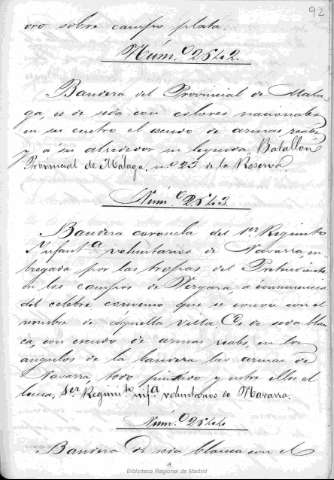 92
oro sobre campo plata.
Núm.º 2542.
Bandera del Provincial de Mála-
ga, es de seda con colores nacionales
en su centro el escudo de armas reales
y a su alrededor la leyenda Batallon
Provincial de Málaga, nº 25 de la Reserva
Núm.º 2543.
Bandera coronela del 1er Regimto
Infanta voluntarios de Navarra, en-
tregada por las tropas del Pretendiente
en los campos de Vergara, a consecuencia
del celebre convenio que se conoce con el
nombre de aquella villa. Es de seda blan-
ca, con escudo de armas reales, en los
angulos de la bandera las armas de
Navarra, todo y entre ellos el
lema, 1er Regimto infa voluntarios de Navarra.
Núm.º 2544
Bandera de seda blanca con el
Biblioteca Regional de Madrid